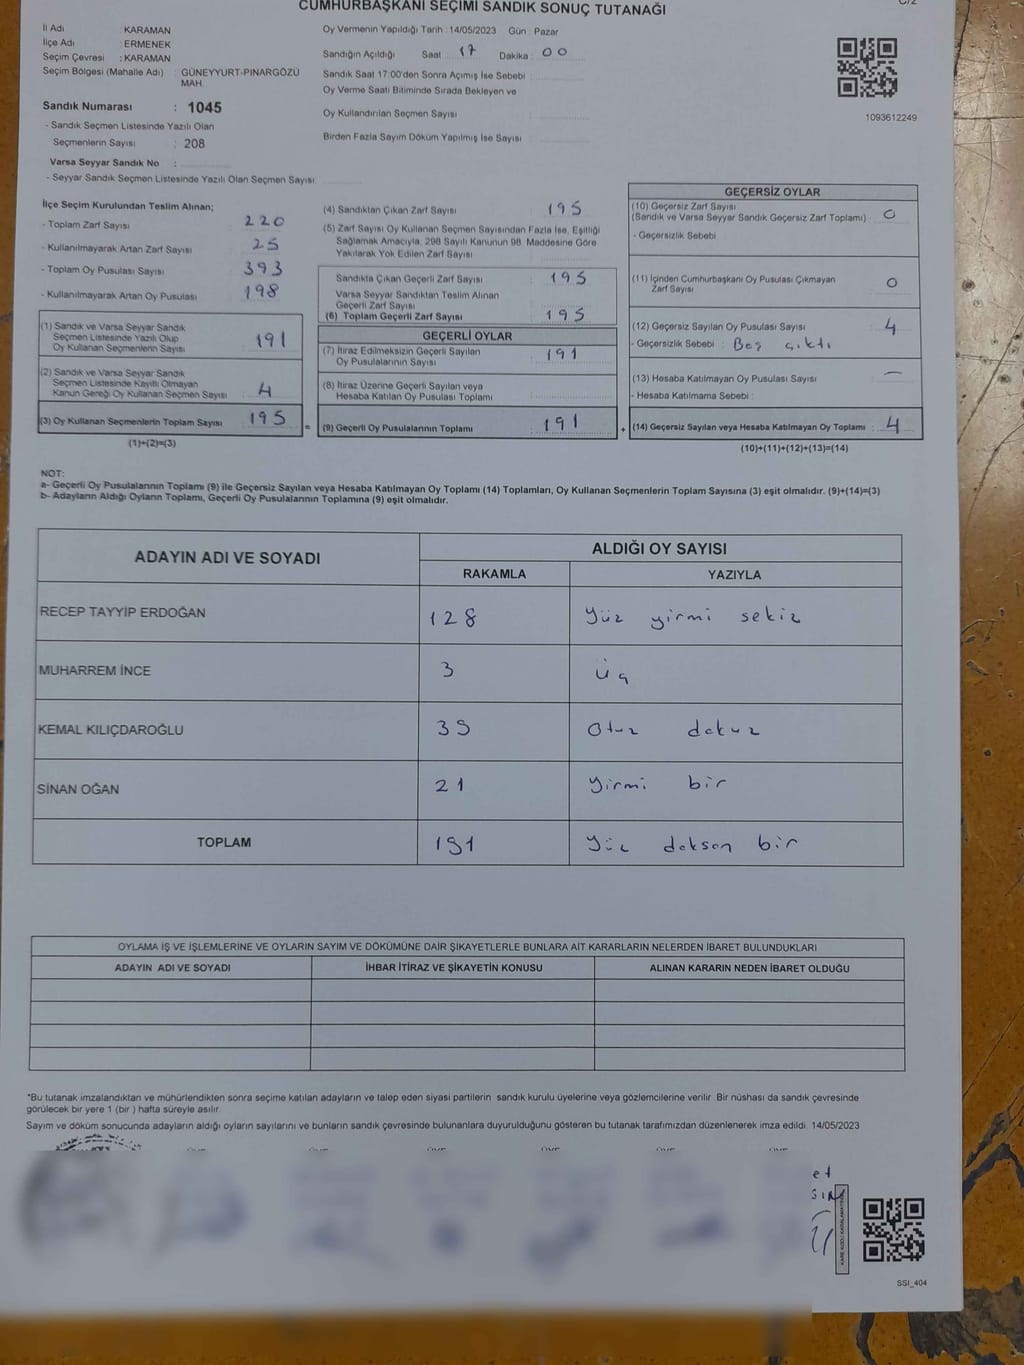 CUMHURBAŞKANI SEÇİMİ SANDIK SONUÇ TUTANAĞI
İl Adı : KARAMAN
İlçe Adı : ERMENEK
Seçim Çevresi : KARAMAN
Seçim Bölgesi (Mahalle Adı) : GÜNEYYURT-PINARGÖZÜ
MAH.
Sandık Numarası : 1045
- Sandık Seçmen Listesinde Yazılı Olan
Seçmenlerin Sayısı : 208
Varsa Seyyar Sandık No :
- Seyyar Sandık Seçmen Listesinde Yazılı Olan Seçmen Sayısı:
Oy Vermenin Yapıldığı Tarih : 14/05/2023 Gün : Pazar
Sandığın Açıldığı Saat 17 Dakika 00
Sandık Saat 17:00'den Sonra Açımış İse Sebebi :
Oy Verme Saati Bitiminde Sırada Bekleyen ve
Oy Kullandırılan Seçmen Sayısı
Birden Fazla Sayım Döküm Yapılmış İse Sayısı :
1093612249
İlçe Seçim Kurulundan Teslim Alınan;
- Toplam Zarf Sayısı : 220
- Kullanılmayarak Artan Zarf Sayısı : 25
- Toplam Oy Pusulası Sayısı : 393
- Kullanılmayarak Artan Oy Pusulası : 198
(1) Sandık ve Varsa Seyyar Sandık
Seçmen Listesinde Yazılı Olup
Oy Kullanan Seçmenlerin Sayısı : 191
(2) Sandık ve Varsa Seyyar Sandık
Seçmen Listesinde Kayıtlı Olmayan
Kanun Gereği Oy Kullanan Seçmen Sayısı : 4
(3) Oy Kullanan Seçmenlerin Toplam Sayısı : 195
(1)+(2)=(3)
(4) Sandıktan Çıkan Zarf Sayısı : 195
(5) Zarf Sayısı Oy Kullanan Seçmen Sayısından Fazla İse, Eşitliği
Sağlamak Amacıyla, 298 Sayılı Kanunun 98. Maddesine Göre
Yakılarak Yok Edilen Zarf Sayısı :
Sandıkta Çıkan Geçerli Zarf Sayısı : 195
Varsa Seyyar Sandıktan Teslim Alınan
Geçerli Zarf Sayısı :
(6) Toplam Geçerli Zarf Sayısı : 195
GEÇERLİ OYLAR
(7) İtiraz Edilmeksizin Geçerli Sayılan
Oy Pusulalarının Sayısı : 191
(8) İtiraz Üzerine Geçerli Sayılan veya
Hesaba Katılan Oy Pusulası Toplamı :
= (9) Geçerli Oy Pusulalarının Toplamı : 191
GEÇERSİZ OYLAR
(10) Geçersiz Zarf Sayısı
(Sandık ve Varsa Seyyar Sandık Geçersiz Zarf Toplamı) : 0
- Geçersizlik Sebebi :
(11) İçinden Cumhurbaşkanı Oy Pusulası Çıkmayan
Zarf Sayısı : 0
(12) Geçersiz Sayılan Oy Pusulası Sayısı : 4
- Geçersizlik Sebebi : Boş çıktı
(13) Hesaba Katılmayan Oy Pusulası Sayısı : —
- Hesaba Katılmama Sebebi :
+ (14) Geçersiz Sayılan veya Hesaba Katılmayan Oy Toplamı : 4
(10)+(11)+(12)+(13)=(14)
NOT:
a- Geçerli Oy Pusulalarının Toplamı (9) ile Geçersiz Sayılan veya Hesaba Katılmayan Oy Toplamı (14) Toplamları, Oy Kullanan Seçmenlerin Toplam Sayısına (3) eşit olmalıdır. (9)+(14)=(3)
b- Adayların Aldığı Oyların Toplamı, Geçerli Oy Pusulalarının Toplamına (9) eşit olmalıdır.
ADAYIN ADI VE SOYADI ALDIĞI OY SAYISI
RAKAMLA YAZIYLA
RECEP TAYYİP ERDOĞAN 128 Yüz yirmi sekiz
MUHARREM İNCE 3 Üç
KEMAL KILIÇDAROĞLU 39 Otuz dokuz
SİNAN OĞAN 21 Yirmi bir
TOPLAM 191 Yüz doksan bir
OYLAMA İŞ VE İŞLEMLERİNE VE OYLARIN SAYIM VE DÖKÜMÜNE DAİR ŞİKAYETLERLE BUNLARA AİT KARARLARIN NELERDEN İBARET BULUNDUKLARI
ADAYIN ADI VE SOYADI İHBAR İTİRAZ VE ŞİKAYETİN KONUSU ALINAN KARARIN NEDEN İBARET OLDUĞU
*Bu tutanak imzalandıktan ve mühürlendikten sonra seçime katılan adayların ve talep eden siyasi partilerin sandık kurulu üyelerine veya gözlemcilerine verilir. Bir nüshası da sandık çevresinde
görülecek bir yere 1 (bir ) hafta süreyle asılır.
Sayım ve döküm sonucunda adayların aldığı oyların sayılarını ve bunların sandık çevresinde bulunanlara duyurulduğunu gösteren bu tutanak tarafımızdan düzenlenerek imza edildi. 14/05/2023
et
SSİ_404